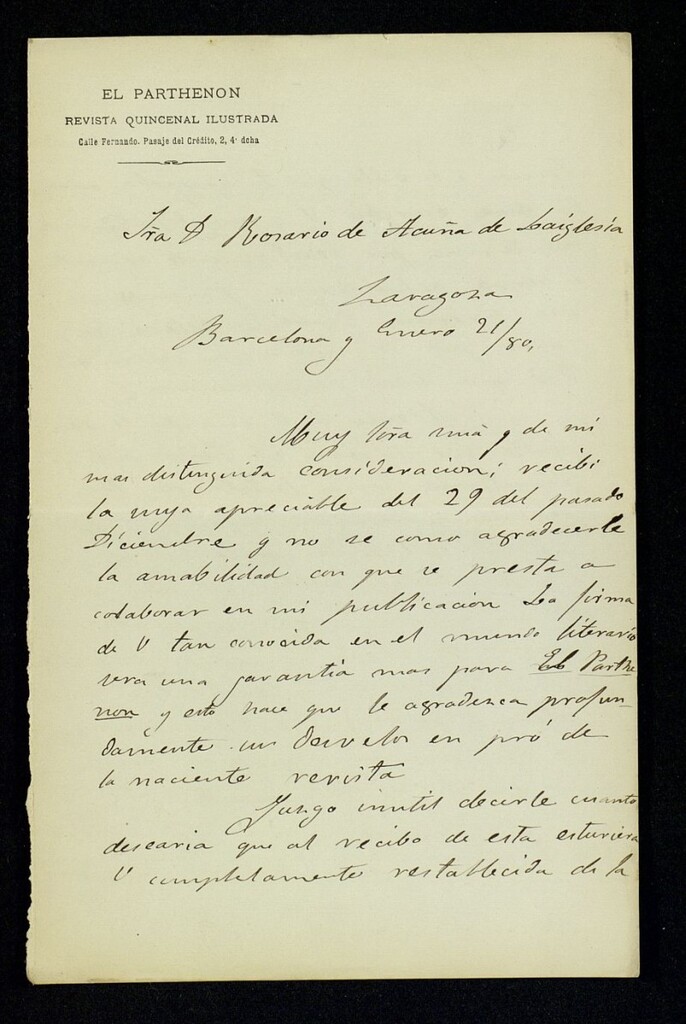 EL PARTHENON
REVISTA QUINCENAL ILUSTRADA
Calle Fernando. Pasaje del Crédito, 2, 4º dcha
Sra Dª Rosario de Acuña de Laiglesia
Zaragoza
Barcelona y Enero 21/80,
Muy Sra mia y de mi
mas distinguida consideracion; recibi
la suya apreciable del 29 del pasado
Diciembre y no se como agradecerle
la amabilidad con que se presta a
colaborar en mi publicacion La firma
de V tan conocida en el mundo literario
sera una garantia mas para El Parthe
non y esto hace que le agradezca profun-
damente sus desvelos en pró de
la naciente revista
Juzgo inutil decirle cuanto
desearia que al recibo de esta estuviera
V completamente restablecida de la